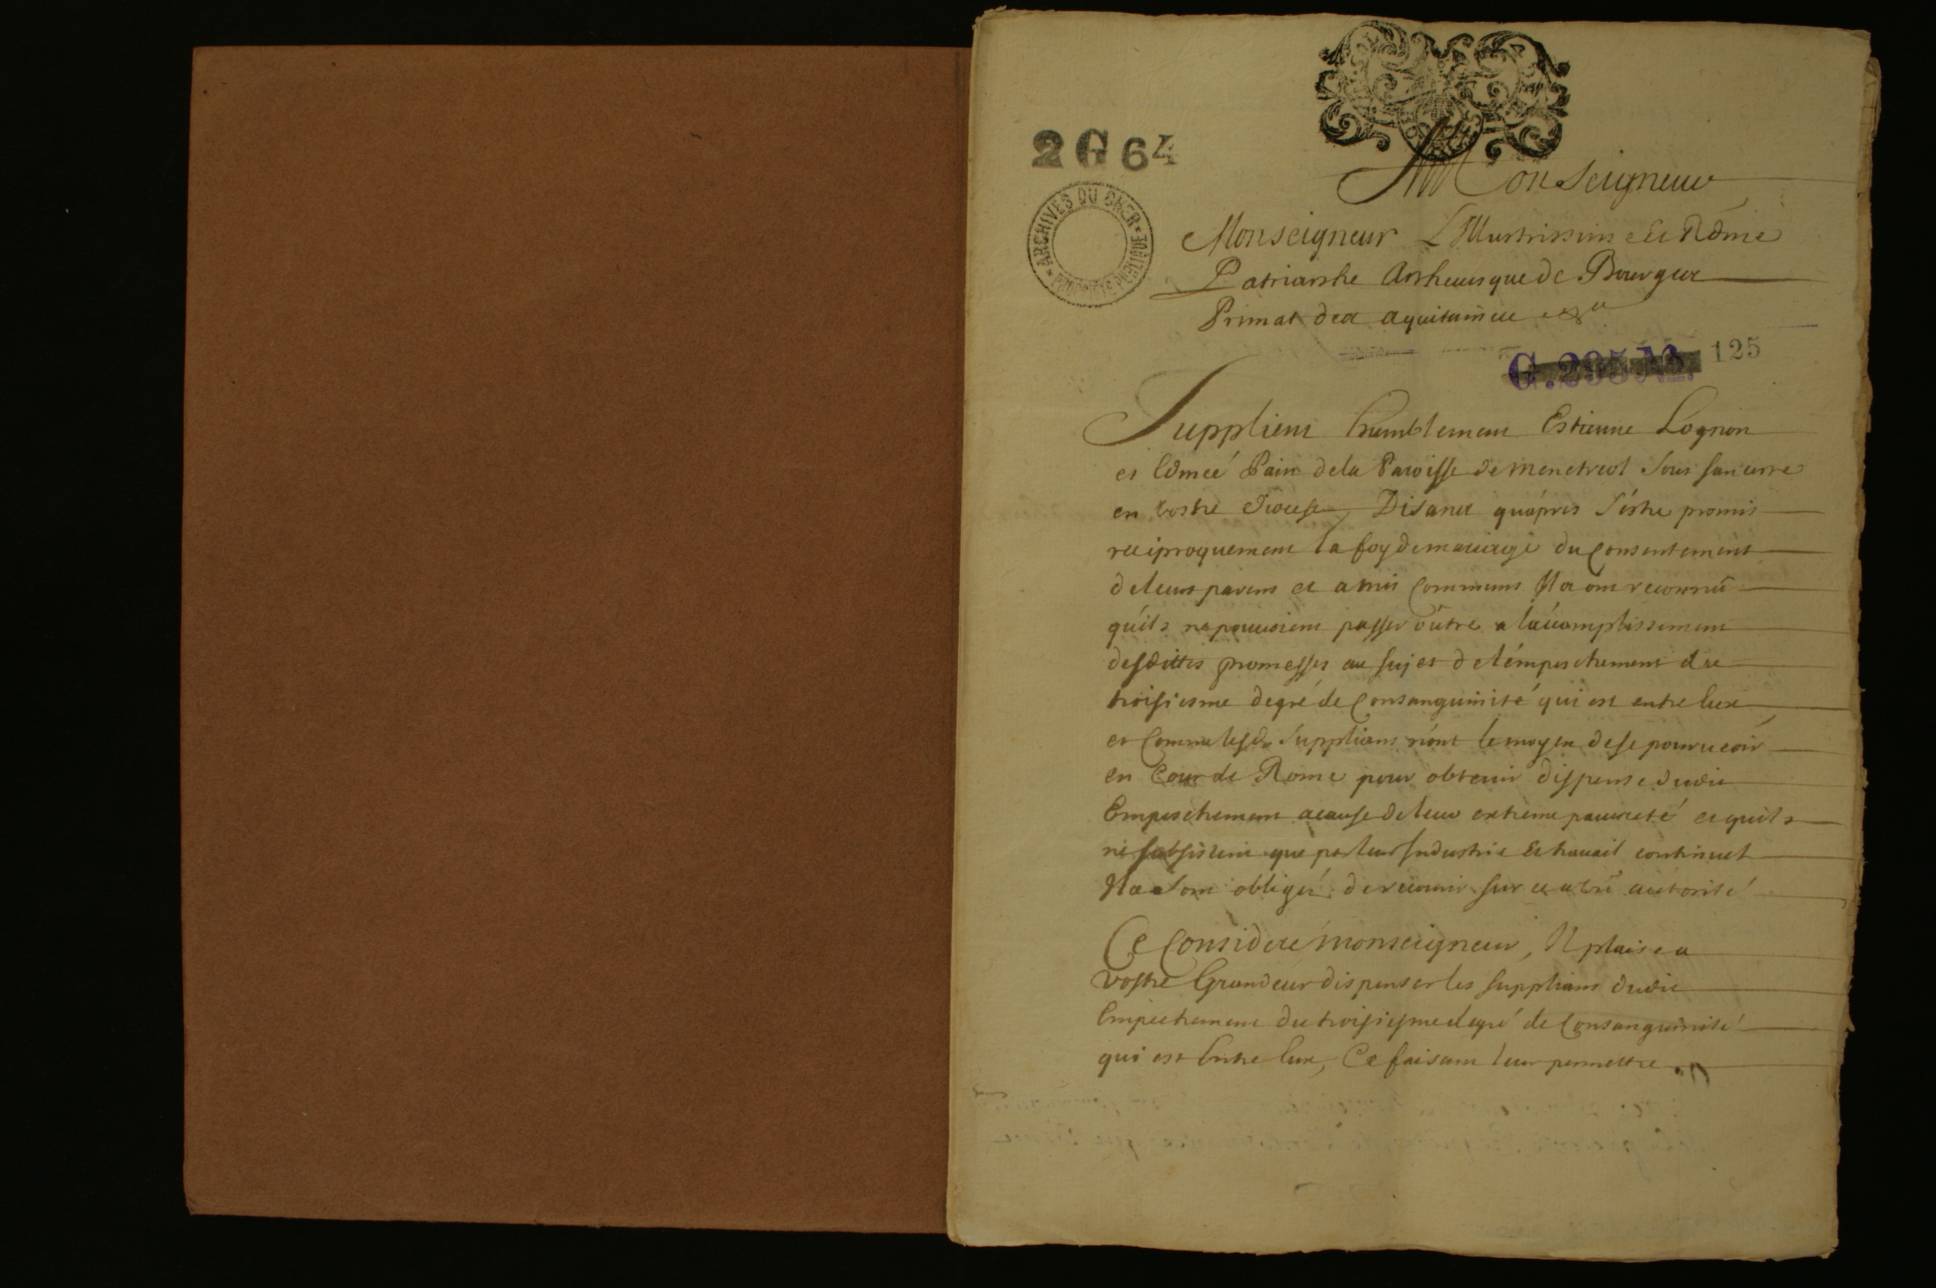 2 G 64
ARCHIVES DU CHER
PROPRIÉTÉ PUBLIQUE
A Monseigneur
Monseigneur L'Illustrissime et Rdme
Patriarche Archeuesque de Bourges
Primat des aquitaines &a
G. 295
125
Supplient humblement Estienne Lognon
et Edmeé Pain de la Paroisse de menetreol Sous Sancerre
en vostre diocese, Disants qu'apres s'éstre promis
reciproquement la foy de mariage du Consentement
de leurs parens et amis communs Ils ont reconnu
qu'ils ne pouuoient passer oûtre a l'accomplissement
desdittes promesses au sujet de l'émpeschement du
troisiesme degré de Consanguinité qui est entre Eux
et Comme lesd. Supplians n'ónt le moyen de se pouruëoir
en Cour de Rome pour obtenir dispense dudit
Empeschement acause de leur extreme pauureté et quils
ne subsistent que par leur Industrie et trauail continuel
Ils sont obligés de recourir sur ce a vre authorité
Ce Consideré monseigneur, Il plaise a
vostre Grandeur dispenser les supplians dudit
Empechement du troisiesme degré de Consanguinité
qui est Entre Eux, Ce faisant leur permettre